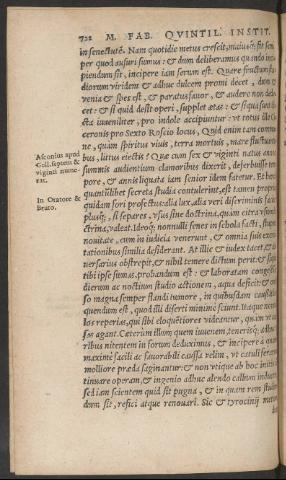 722 M. FAB. QVINTIL. INSTIT.
in senectutē. Nam quotidie metus crescit, maiusq; fit sem
per quod ausuri sumus: & dum deliberamus quando inci
piendum sit, incipere iam serum est. Quare fructum stu
diorum viridem & adhuc dulcem promi decet: dum &
venia & spes est, & paratus fauor, & audere non dede
cet: & si quid desit operi, supplet ætas: & si qua sunt di
cta iuueniliter, pro indole accipiuntur: vt totus ille Ci
ceronis pro Sexto Roscio locus, Quid enim tam commu
ne, quam spiritus viuis, terra mortuis, mare fluctuanti
bus, littus eiectis? Quæ cum sex & viginti natus annos
summis audientium clamoribus dixerit, deferbuisse tem
pore, & annis liquata iam senior idem fatetur. Et hoc
quantūlibet secreta studia contulerint, est tamen proprius
quidam fori profectus: alia lux, alia veri discriminis facies:
plusq;, si separes, vsus sine doctrina, quàm citra vsum do
ctrina, valeat. Ideoq; nonnulli senes in schola facti, stupent
nouitate, cum in iudicia venerunt, & omnia suis exerci
tationibus similia desiderant. At illic & iudex tacet, & ad
uersarius obstrepit, & nihil temere dictum perit: & si quid
tibi ipse sumas, probandum est: & laboratam congestamq;
dierum ac noctium studio actionem, aqua deficit: & omis
so magna semper flandi tumore, in quibusdam causis lo
quendum est, quod illi diserti minimè sciunt. Itaque nonnul
los reperias, qui sibi eloquētiores videantur, quàm vt cau
sas agant. Cæterùm illum quem iuuenem, tenerisq; adhuc vi
ribus nitentem in forum deduximus, & incipere à quàm
maximè facili ac fauorabili caussa velim, vt catuli ferarum
molliore præda saginantur: & non vtique ab hoc initio con
tinuare operam, & ingenio adhuc alendo callum inducere:
sed iam scientem quid sit pugna, & in quam rem studen
dum sit, refici atque renouari. Sic & tyrocinij metum
Asconius apud
Gell. septem &
viginti nume-
rat.
In Oratore &
Bruto.